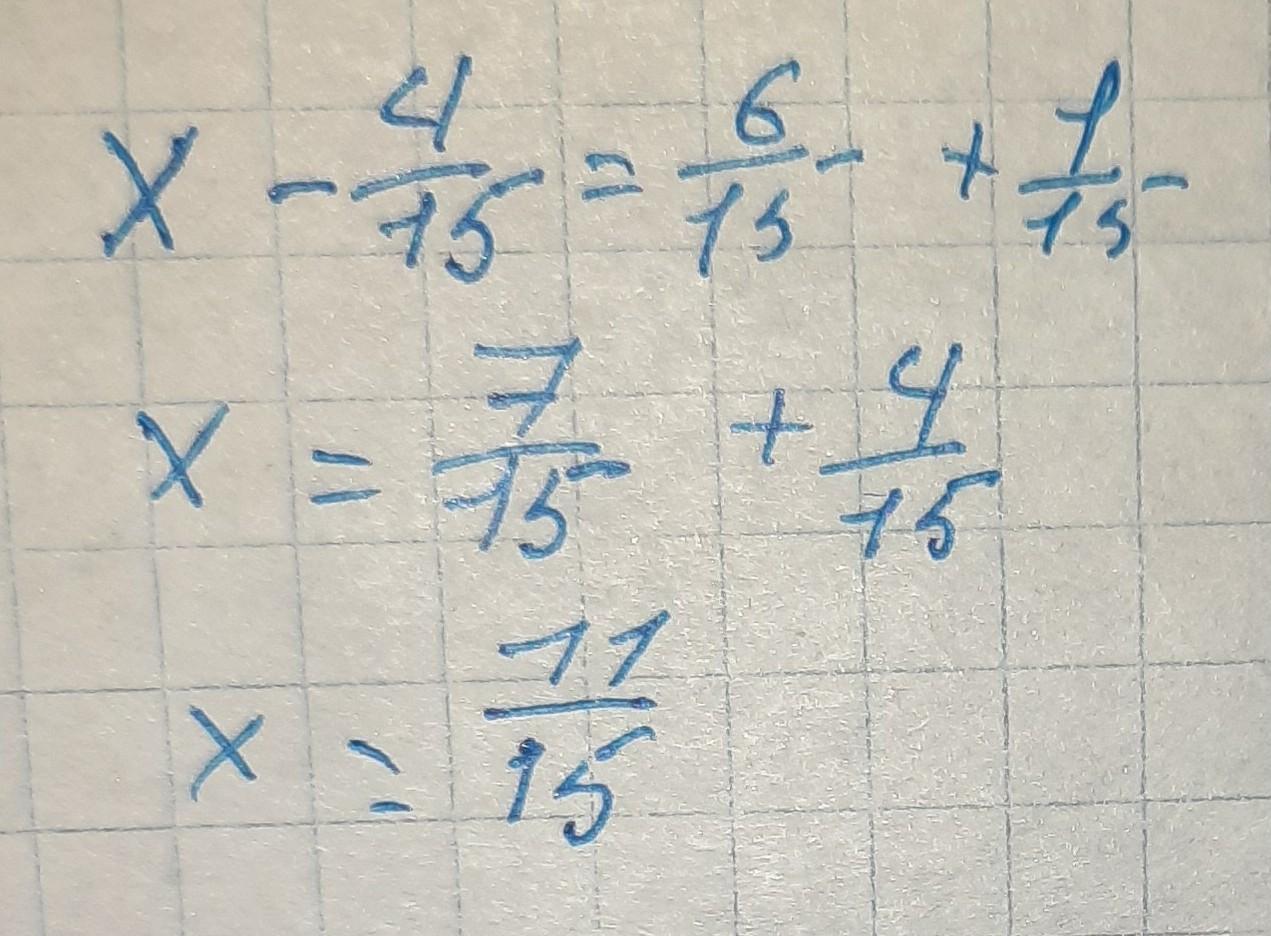 x - 4/15 = 6/15 + 1/15
x = 7/15 + 4/15
x = 11/15